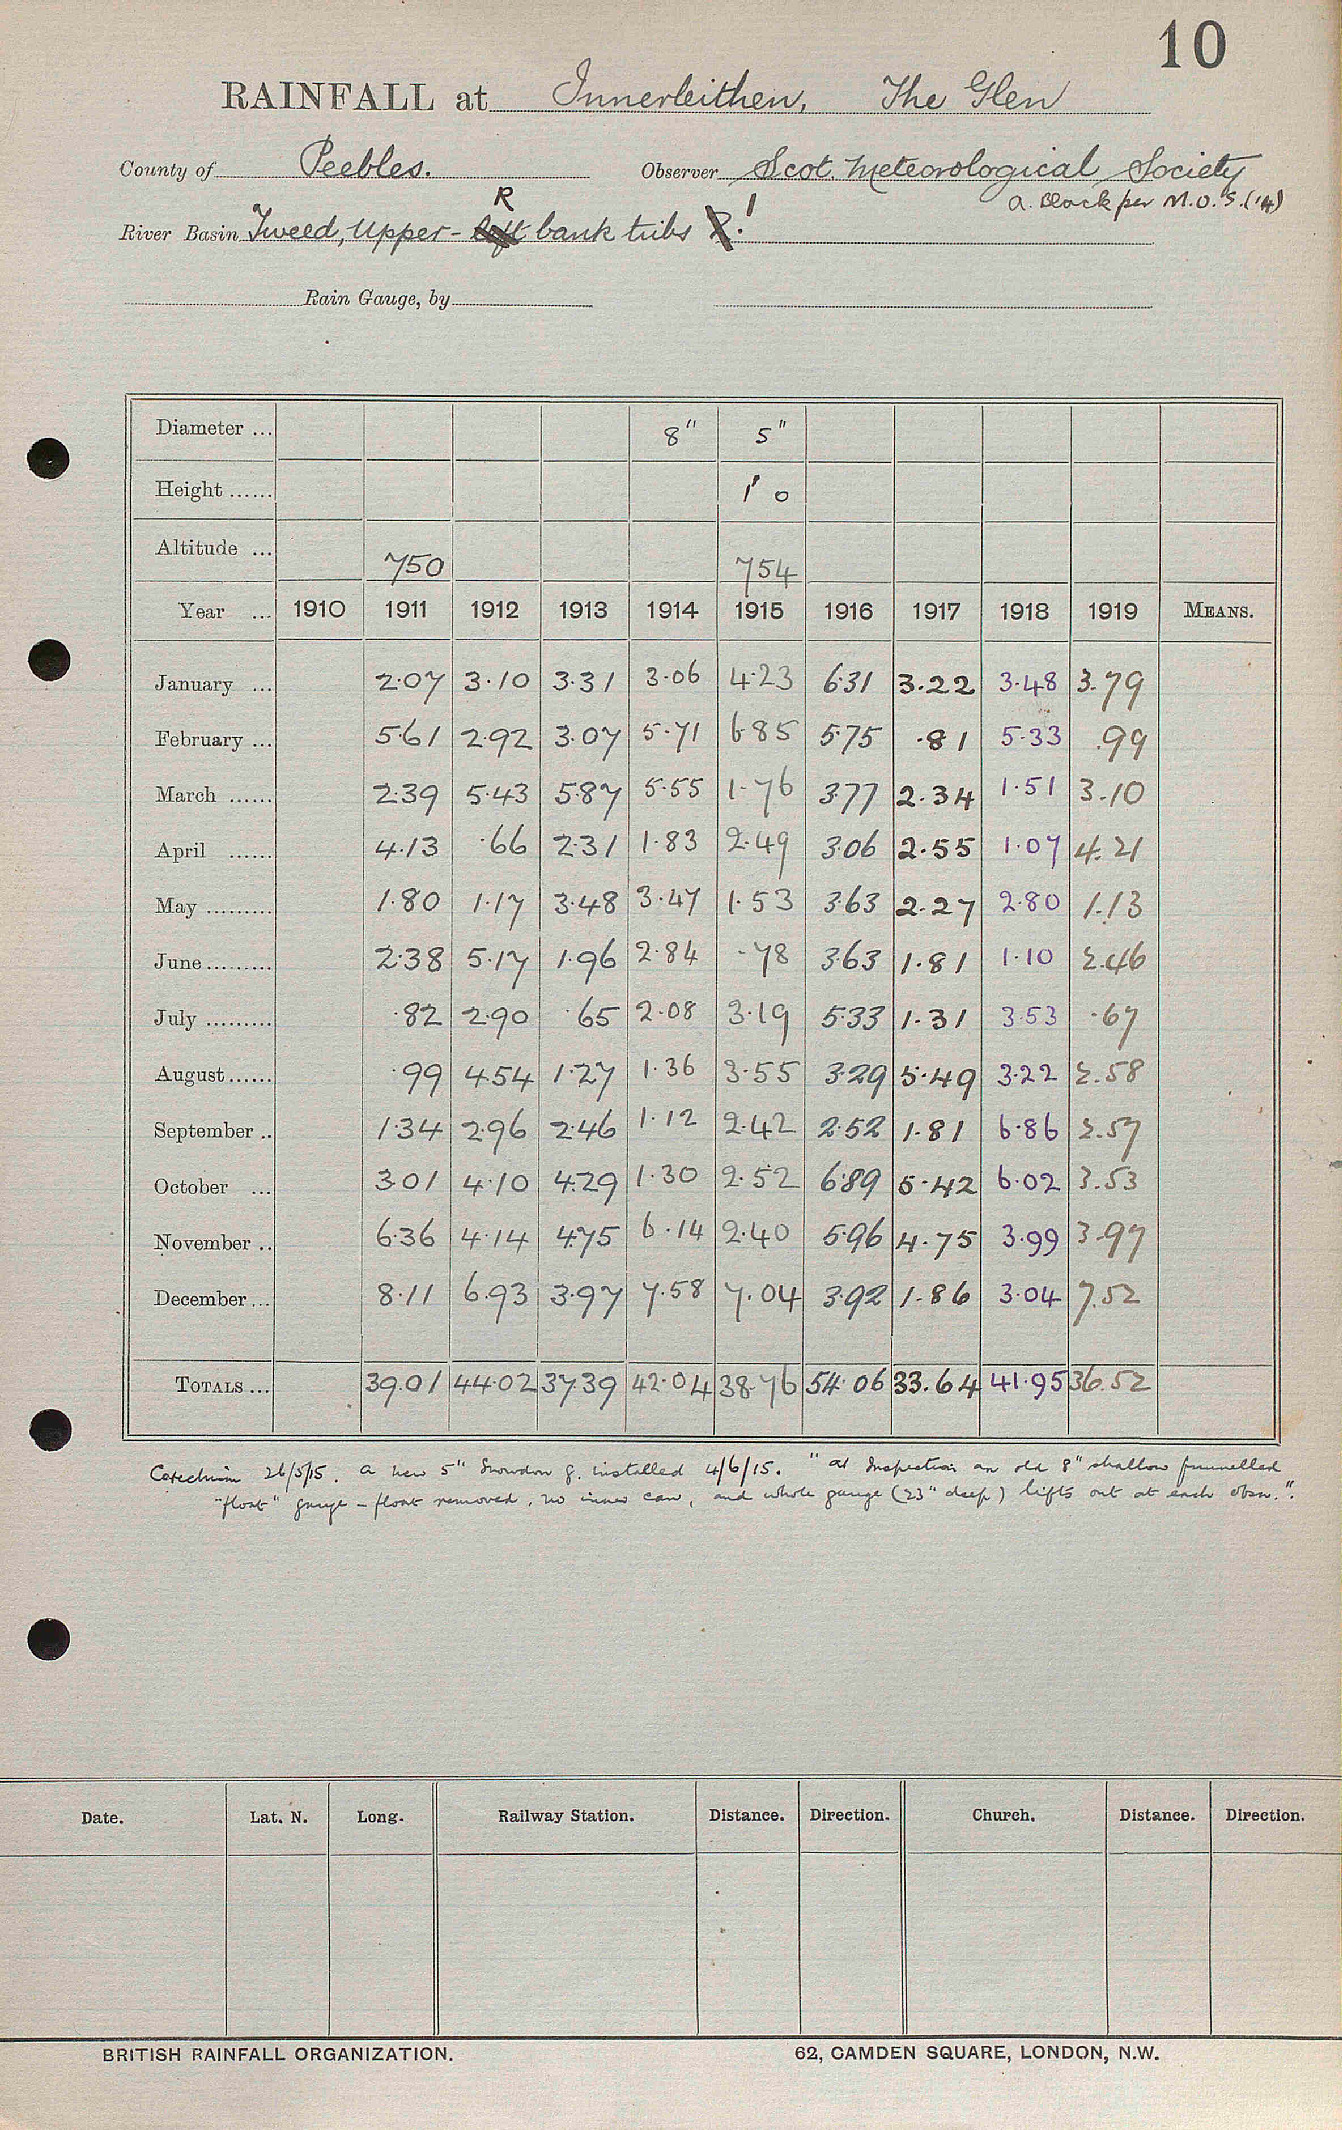 10
RAINFALL at Innerleithen, The Glen
County of Peebles. Observer Scot. Meteorological Society
a. Black per M.O.S. (14)
R 1
River Basin Tweed, Upper - left bank tribs 2.
Rain Gauge, by
Diameter ... 8" 5"
Height ...... 1' 0
Altitude ... 750 754
Year ... 1910 1911 1912 1913 1914 1915 1916 1917 1918 1919 MEANS.
January ... 2.07 3.10 3.31 3.06 4.23 6.31 3.22 3.48 3.79
February ... 5.61 2.92 3.07 5.71 6.85 5.75 .81 5.33 .99
March ...... 2.39 5.43 5.87 5.55 1.76 3.77 2.34 1.51 3.10
April ...... 4.13 .66 2.31 1.83 2.49 3.06 2.55 1.07 4.21
May ......... 1.80 1.17 3.48 3.47 1.53 3.63 2.27 2.80 1.13
June ......... 2.38 5.17 1.96 2.84 .78 3.63 1.81 1.10 2.46
July ......... .82 2.90 .65 2.08 3.19 5.33 1.31 3.53 .67
August ...... .99 4.54 1.27 1.36 3.55 3.29 5.49 3.22 2.58
September .. 1.34 2.96 2.46 1.12 2.42 2.52 1.81 6.86 2.57
October ... 3.01 4.10 4.29 1.30 2.52 6.89 5.42 6.02 3.53
November .. 6.36 4.14 4.75 6.14 2.40 5.96 4.75 3.99 3.97
December ... 8.11 6.93 3.97 7.58 7.04 3.92 1.86 3.04 7.52
TOTALS ... 39.01 44.02 37.39 42.04 38.76 54.06 33.64 41.95 36.52
Catechism 26/5/15. A new 5" Snowdon g. installed 4/6/15. "At Inspection an old 8" shallow funnelled
"float" gauge - float removed, no inner can, and whole gauge (23" deep) lifts out at each obsn.".
Date. Lat. N. Long. Railway Station. Distance. Direction. Church. Distance. Direction.
BRITISH RAINFALL ORGANIZATION. 62, CAMDEN SQUARE, LONDON, N.W.